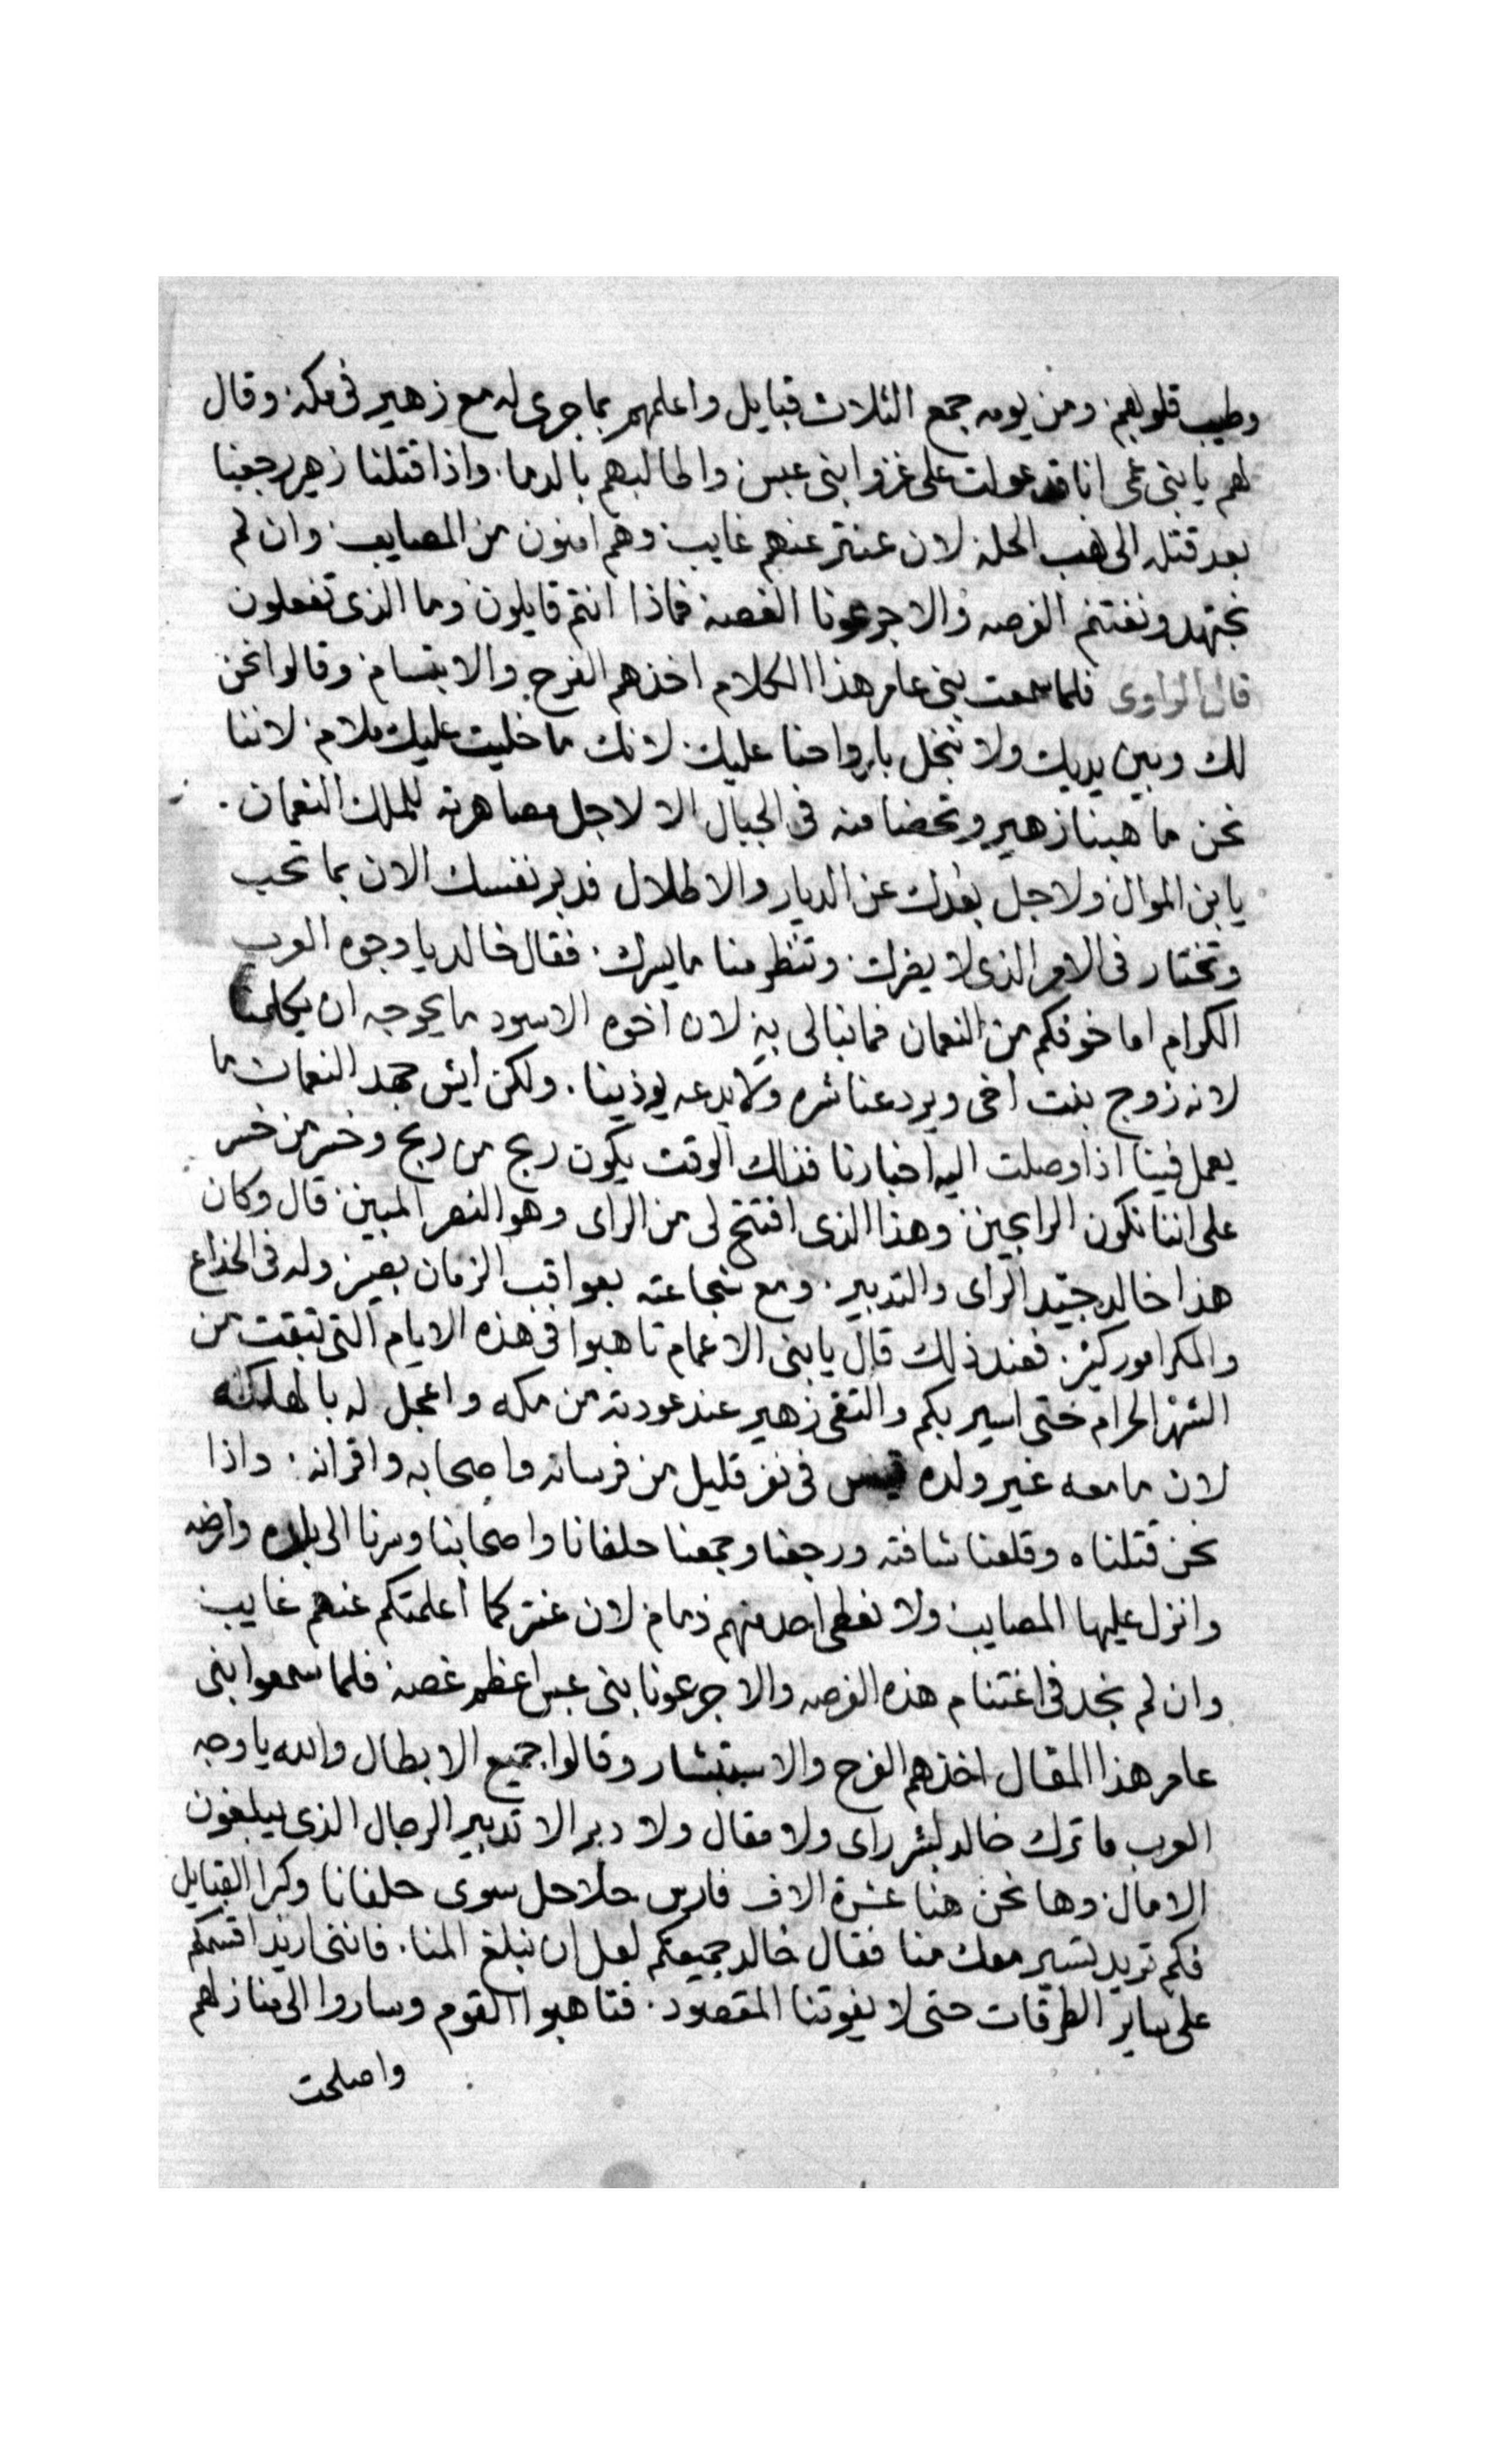 وطيب قلوبهم ومن يومه جمع الثلاث قبايل واعلمهم بما جرى له مع زهير فى مكه وقال
لهم يا بنى عمى انا قد عولت على غزو ابنى عبس واطالبهم بالدما واذا قتلنا زهير رجعنا
بعد قتله الى نهب الحله لان عنتر عنهم غايب وهم امنون من المصايب وان لم
نجتهد ونغتنم الفرصه والا جرعونا الغصه فماذا انتم قايلون وما الذى تفعلون
قال الراوى فلما سمعت بنى عامر هذا الكلام اخذهم الفرح والابتسام وقالوا نحن
لك وبين يديك ولا نبخل بارواحنا عليك لانك ما خليت عليك ملام لاننا
نحن ما هبنا زهير وتحضنا منه فى الجبال الا لاجل مصاهرته للملك النعمان
يا بن الموال ولاجل بعدك عن الديار والاطلال فدبر نفسك الان بما تحب
وتختار فى الامر الذى لا يضرك وتنظر منا ما يسرك فقال خالد يا وجوه العرب
الكرام اما خوفكم من النعمان فما نبالى به لان اخوه الاسود ما يحوجه ان يكلمنا
لانه زوج بنت اخى ويرد عنا شره ولا يدعه يوذينا ولكن ايش جهد النعمان ما
يعمل فينا اذا وصلت اليه اخبارنا فذاك الوقت يكون ربح من ربح وخسر من خسر
على اننا نكون الرابحين وهذا الذى افتتح لى من الراى وهو النصر المبين قال وكان
هذا خالد جيّد الراى والتدبير ومع شجاعته بعواقب الزمان بصير وله فى الخداع
والمكر امور كثير فعند ذلك قال يا بنى الاعمام تاهبوا فى هذه الايام التى تبقت من
الشهر الحرام حتى اسير بكم والتقى زهير عند عودته من مكه واعجل له بالهلكه
لان ما معه غير ولده قيس فى نفر قليل من فرسانه واصحابه واقرانه واذا
نحن قتلناه وقلعنا شافته ورجعنا وجمعنا حلفانا واصحابنا وسرنا الى بلاده وارضه
وانزل عليها المصايب ولا نعطى احد منهم ذمام لان عنتر كما اعلمتكم عنهم غايب
وان لم نجد فى اغتنام هذه الفرصه والا جرعونا بنى عبس اعظم غصه فلما سمعوا بنى
عامر هذا المقال اخذهم الفرح والاستبشار وقالوا جميع الابطال والله يا وجه
العرب ما ترك خالد لبشر راى ولا مقال ولا دبر الا تدبير الرجال الذى يبلغون
الامال وها نحن هنا عشرة الاف فارس حلاحل سوى حلفانا وكرا القبايل
فكم تريد تسير معك منا فقال خالد جميعكم لعل ان نبلغ المنا فاننى اريد اقسمكم
على ساير الطرقات حتى لا يفوتنا المقصود فتاهبوا القوم وساروا الى منازلهم
واصلحت